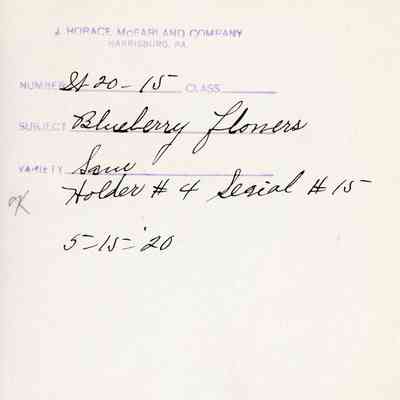 J. HORACE McFARLAND COMPANY
HARRISBURG, PA.
NUMBER St 20-15 CLASS
SUBJECT Blueberry flowers
VARIETY Same
Holder # 4 Serial # 15
OK
5-15-'20